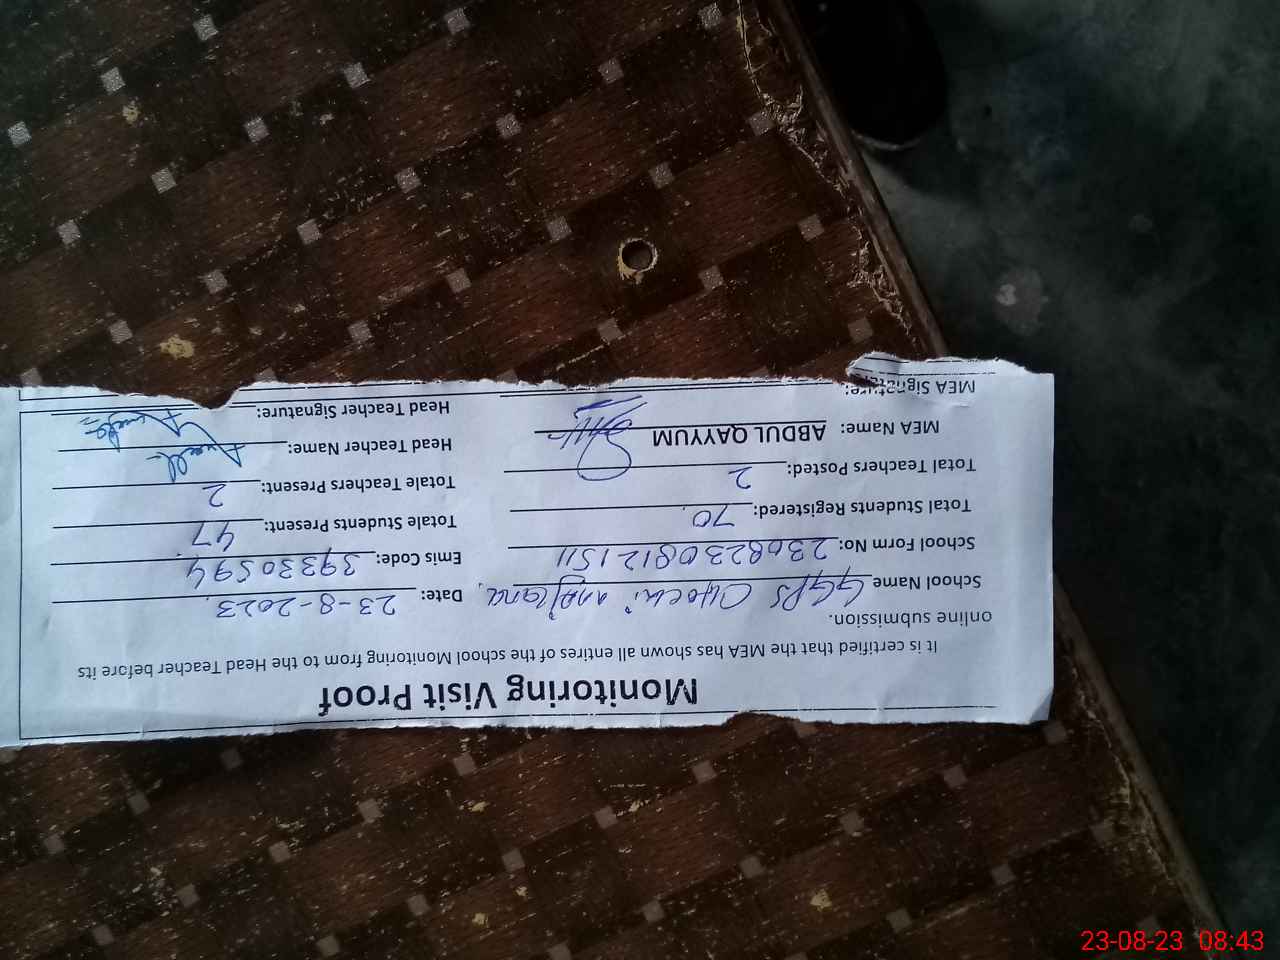 Monitoring Visit Proof
It is certified that the MEA has shown all entires of the school Monitoring from to the Head Teacher before its
online submission.
School Name GGPS Date: 23-8-2023
School Form No: 230823081211511 Emis Code: 39330594
Total Students Registered: 70 Totale Students Present: 47
Total Teachers Posted: 2 Totale Teachers Present: 2
MEA Name: ABDUL QAYYUM Head Teacher Name:
MEA Signature: Head Teacher Signature:
23-08-23 08:43